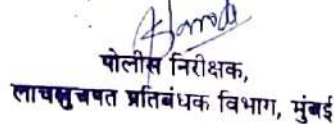 पोलीस निरीक्षक,
लाचलुचपत प्रतिबंधक विभाग, मुंबई